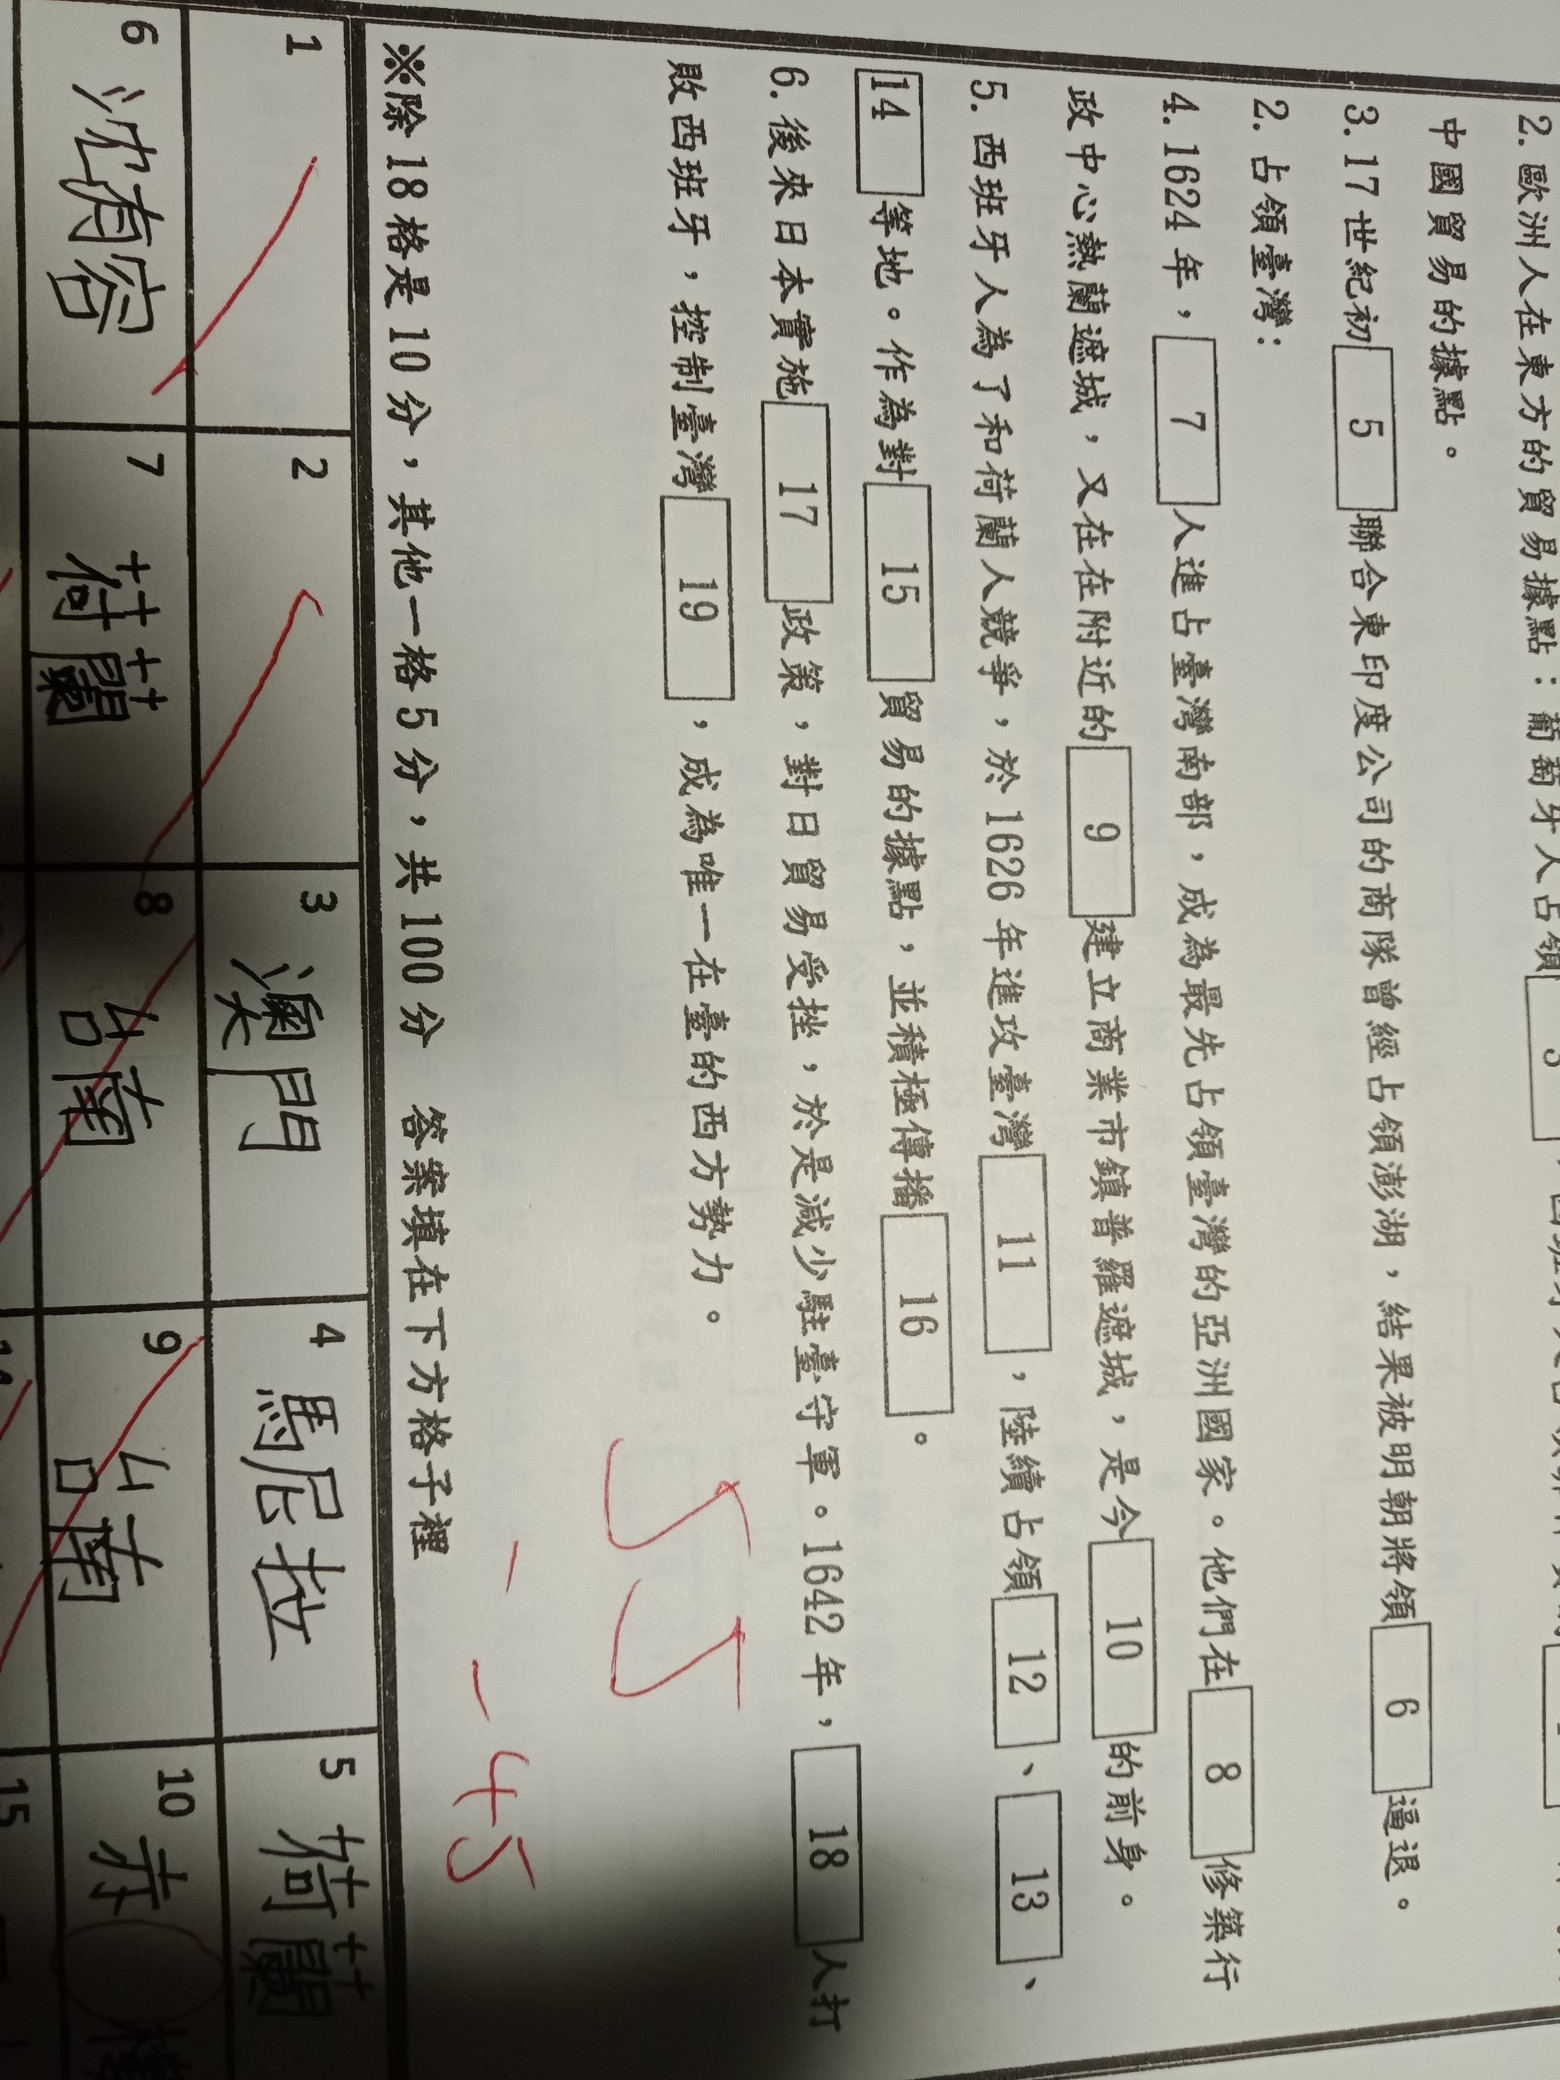 2.歐洲人在東方的貿易據點：葡萄牙人占領 3
中國貿易的據點。
3.17世紀初 5 聯合東印度公司的商隊曾經占領澎湖，結果被明朝將領 6 逼退。
2.占領臺灣：
4.1624年，7 人進占臺灣南部，成為最先占領臺灣的亞洲國家。他們在 8 修築行
政中心熱蘭遮城，又在在附近的 9 建立商業市鎮普羅遮城，是今 10 的前身。
5.西班牙人為了和荷蘭人競爭，於1626年進攻臺灣 11，陸續占領 12、13、
14 等地。作為對 15 貿易的據點，並積極傳播 16。
6.後來日本實施 17 政策，對日貿易受挫，於是減少駐臺守軍。1642年，18 人打
敗西班牙，控制臺灣 19，成為唯一在臺的西方勢力。
55
-45
※除18格是10分，其他一格5分，共100分 答案填在下方格子裡
1 2 3 澳門 4 馬尼拉 5 荷蘭
6 沈有容 7 荷蘭 8 台南 9 台南 10 赤
14 15